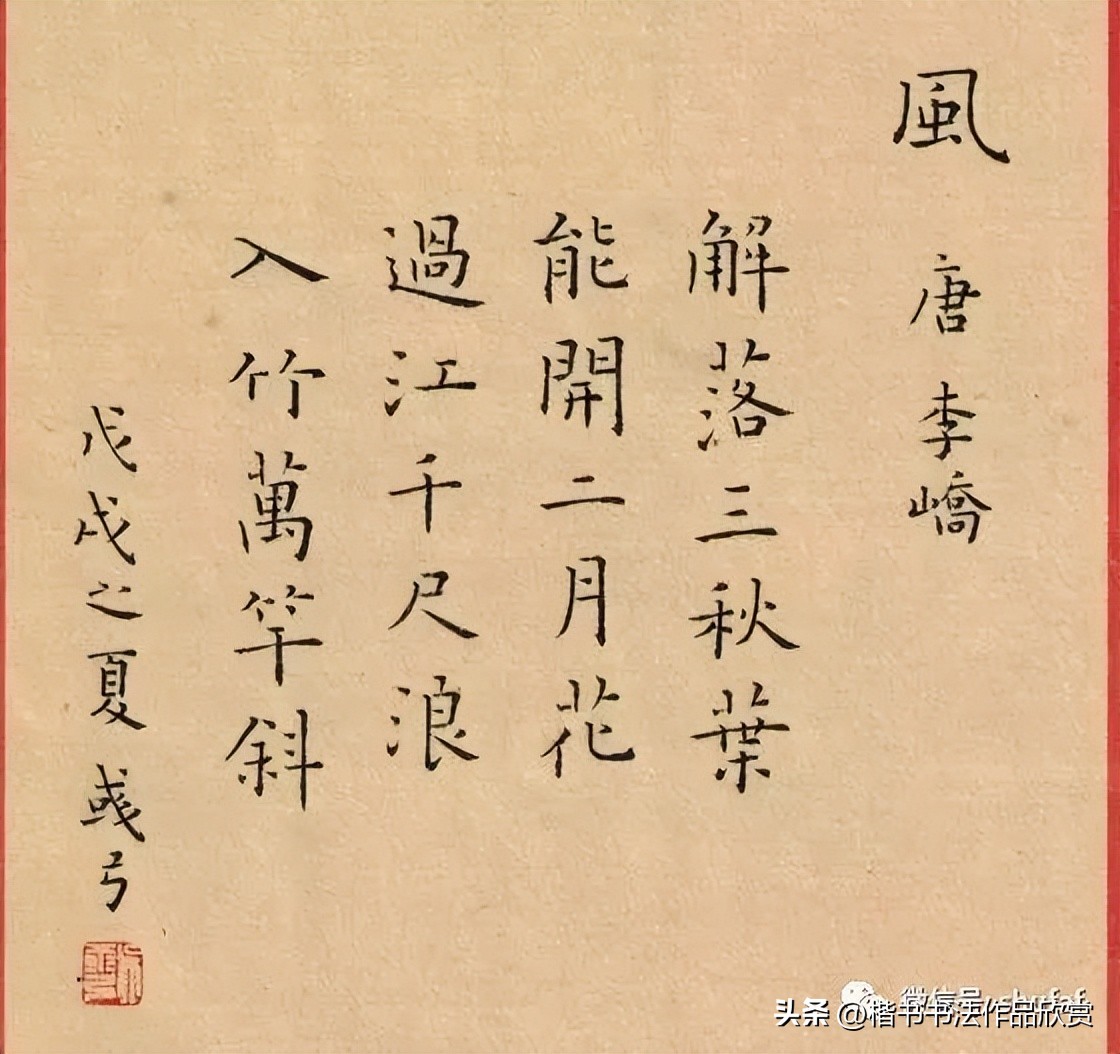 風 唐 李嶠
解落三秋葉
能開二月花
過江千尺浪
入竹萬竿斜
戊戌之夏 彧弓
微信号
头条 @楷书书法作品欣赏